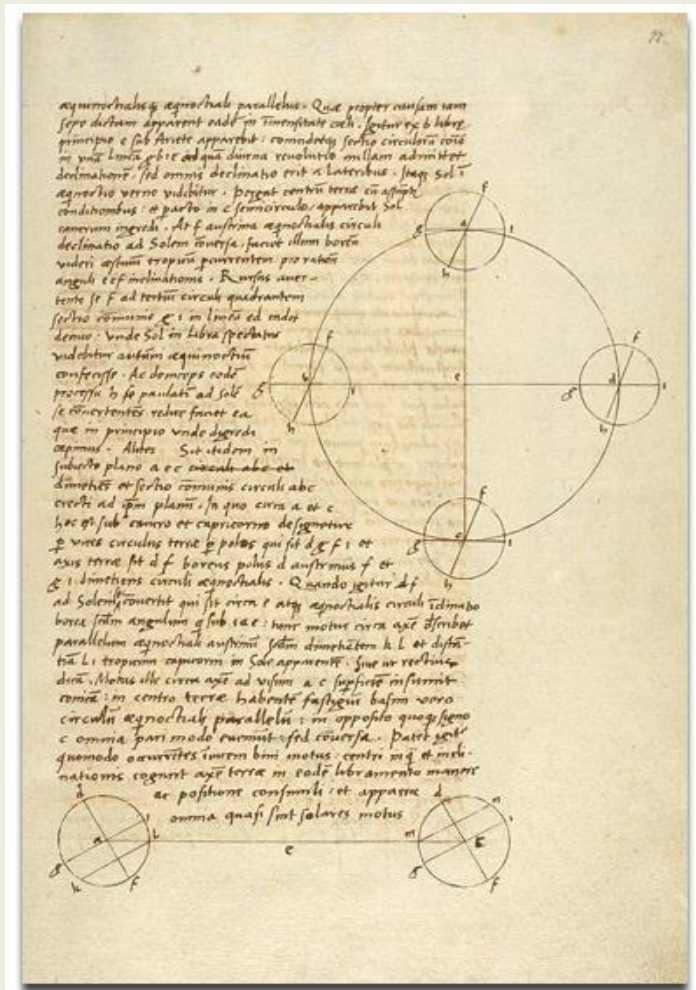 æquinoctialisq æqnoctiali parallelus. Quæ propter causam iam
sepe dictam apparent eadē in īmensitate cæli. Igitur ex b libræ
principio e sub Ariete apparebit: coincidetq sectio circulorū cōis
in unā lineā g b i e ad quā diurna revolutio nullam admittet
declinationē. sed omnis declinatio erit a lateribus. Itaq Sol ī
æqnoctio verno videbitur. Pergat centrū terræ cū assūptis
conditionibus: et pacto in c semicirculo, apparebit Sol
cancrum ingredi. At f austrina æqnoctialis circuli
declinatio ad Solem cōversa, faciet illum boreū
videri æstivū tropicū percurrentem pro ratiōe
anguli e c f inclinationis. Rursus aver-
tente se f ad tertiū circuli quadrantem
sectio cōmunis g i in lineā ed cadet
denuo. unde Sol in Libra spectatus
videbitur autūni æquinoctiū
confecisse. Ac deinceps eodē
processu h se paulatī ad Solē
se convertentes redire faciet ea
quæ in principio unde digredi
cœpimus. Aliter Sit itidem in
subiecto plano a e c circuli abc et
dimetiēs et sectio cōmunis circuli abc
erecti ad ipm planū. In quo circa a et c
hoc est sub cancro et capricorno designetur
circulus terræ polos qui sit d g f i et
axis terræ sit d f boreus polus d austrinus f et
g i dimetiens circuli æqnoctialis. Quando igitur d f
ad Solem convertit qui sit circa e atq æqnoctialis circuli īclinatio
borea angulum q sub i a e: tunc motus circa axē describet
parallelum æqnoctiali austrinū dimetientem k l et distā-
tiā l i tropicum capricorni in Sole apparentē. Sive ut rectius
dicā. Motus ille circa axē ad visum a c supficiem insumit
conicā: in centro terræ habentē fastigiū basim vero
circulū æqnoctiali parallelū: in opposito quoq signo
c omnia pari modo eveniūt: sed cōversa. Patet igit
quomodo occurrētes invicem bini motus: centri inq et incli-
nationis cogunt axē terræ in eodē libramento manere
ac positione consimili: et apparere
omnia quasi sint solares motus
f
a
g
i
h
f
b
g
i
h
e
f
d
g
i
h
f
c
g
i
h
d
i
a
l
g
k
f
e
d
n
i
m
g
f